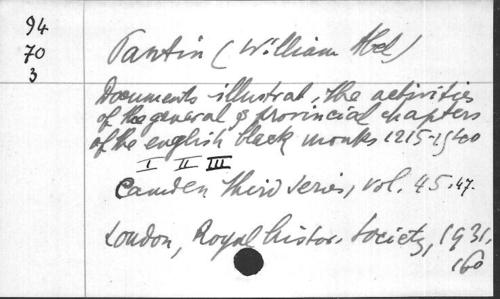 94
70
3
Pantin (William Abel)
Documents illustrat. the activities
of the general & provincial chapters
of the english black monks 1215-1540
I II III
Camden third series, vol. 45.47.
London, Royal histor. Society, 1931.
160